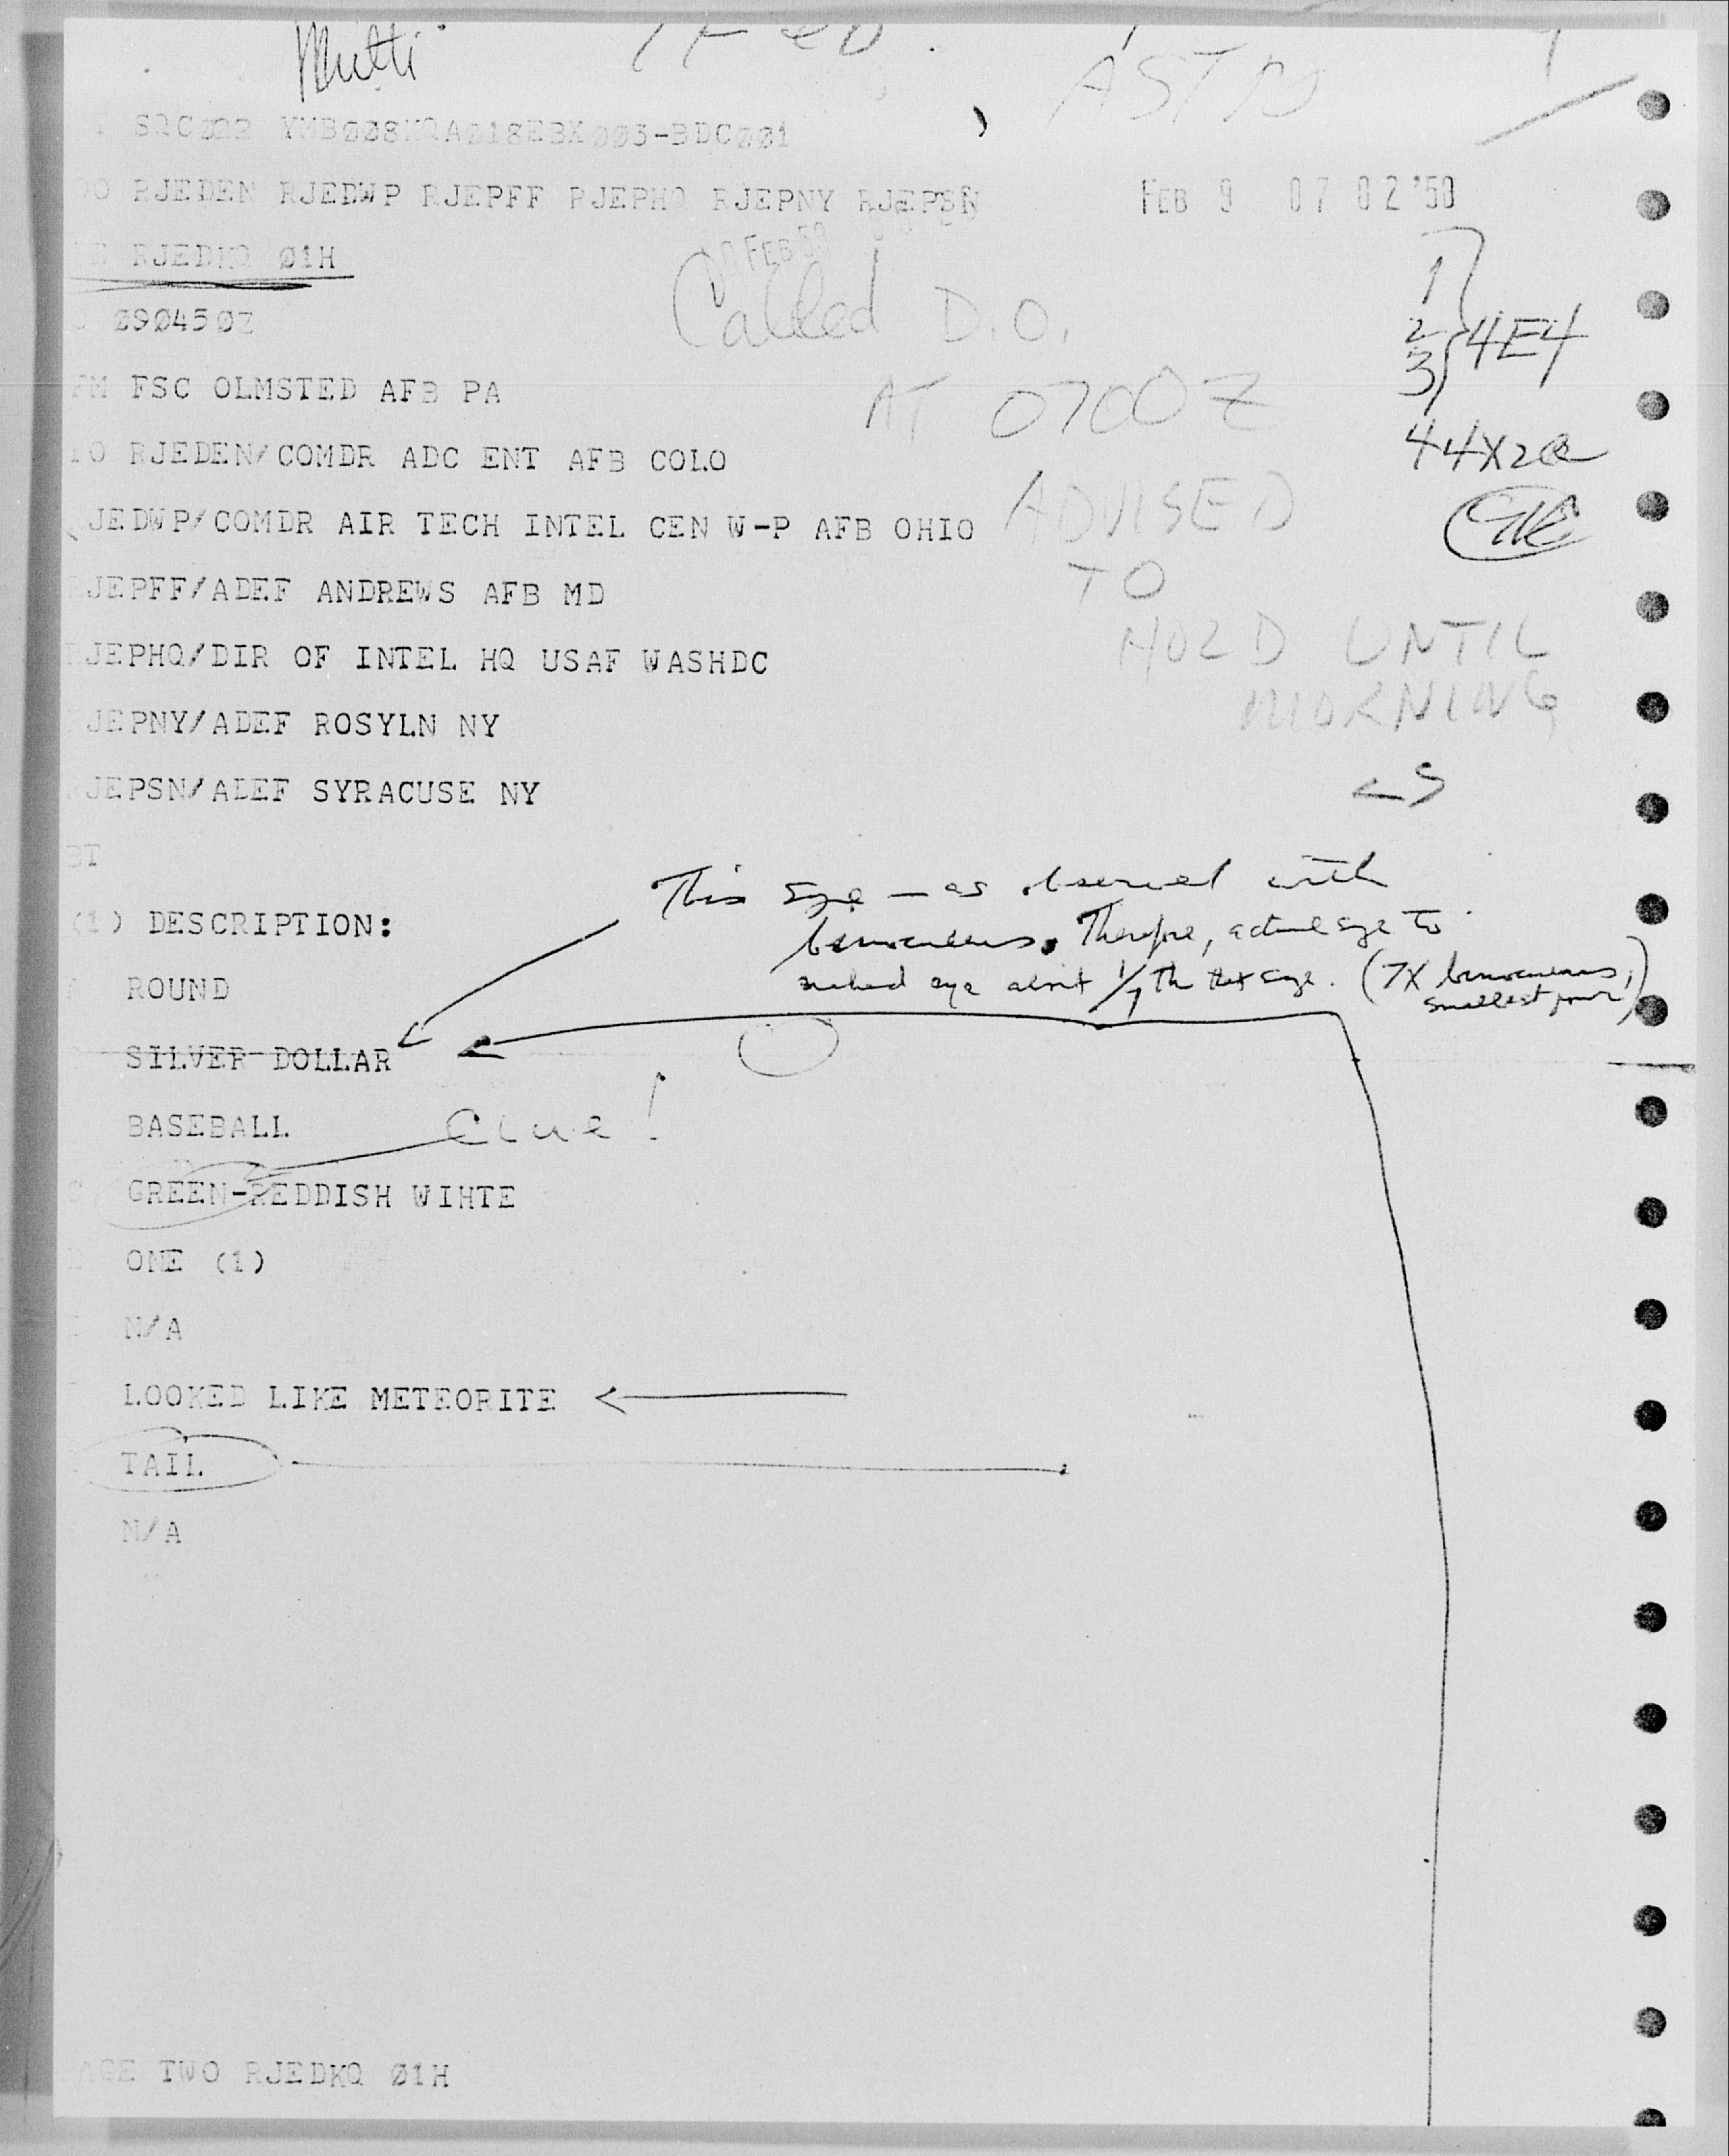 Multi
ASTRO
YMB008KQA018EBX005-BDC001
RJEDEN RJEDWP RJEPFF RJEPHQ RJEPNY RJEPSN
FEB 9 07 02 '58
RJEDKQ Ø1H
FEB 58
Called D.O.
1
2
3
4E4
Ø9Ø45ØZ
FM FSC OLMSTED AFB PA
AT 0700Z
44X2a
TO RJEDEN/COMDR ADC ENT AFB COLO
JEDWP/COMDR AIR TECH INTEL CEN W-P AFB OHIO
ADVISED
TO
JEPFF/ADEF ANDREWS AFB MD
HOLD UNTIL
JEPHQ/DIR OF INTEL HQ USAF WASHDC
MORNING
JEPNY/ADEF ROSYLN NY
JEPSN/ALEF SYRACUSE NY
BT
This size — as observed with
(1) DESCRIPTION:
binoculars. Therefore, actual size to
naked eye about 1/7 th that size. (7X binoculars,
smallest power)
ROUND
SILVER DOLLAR
BASEBALL
Clue!
GREEN-REDDISH WIHTE
ONE (1)
N/A
LOOKED LIKE METEORITE
TAIL
N/A
AGE TWO RJEDKQ Ø1H